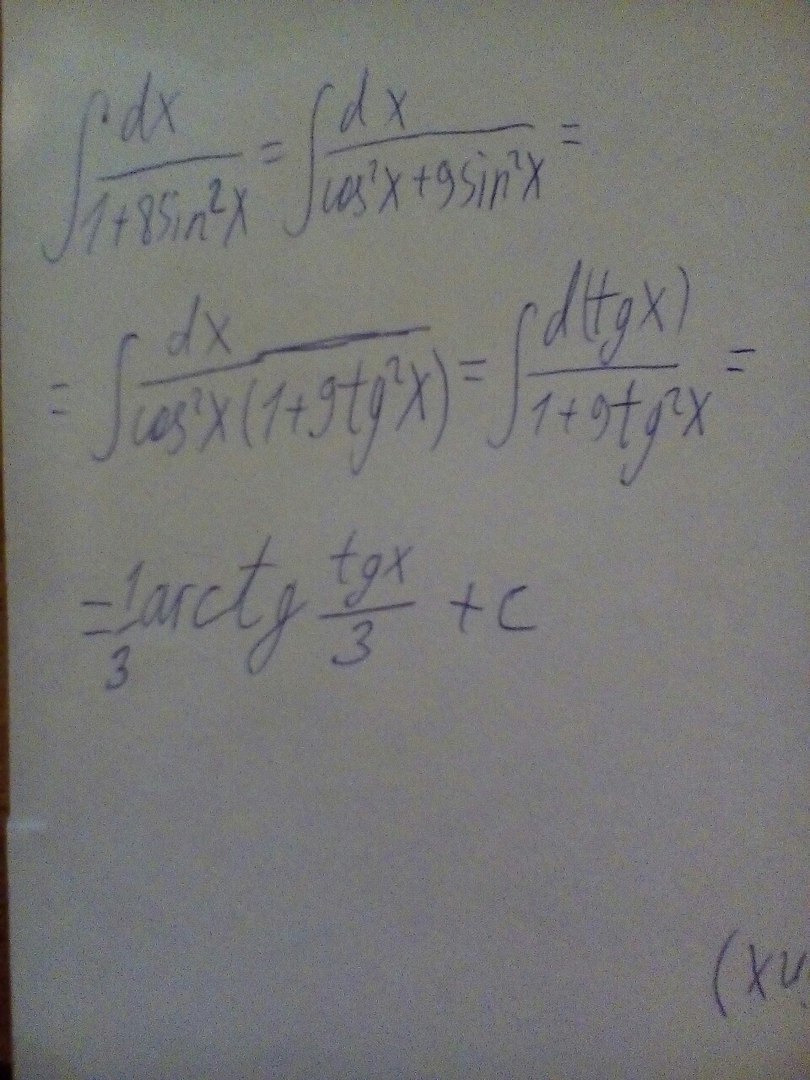 ∫ dx/(1+8sin²x) = ∫ dx/(cos²x+9sin²x) =
= ∫ dx/(cos²x(1+9tg²x)) = ∫ d(tgx)/(1+9tg²x) =
= 1/3 arctg tgx/3 + c
(x